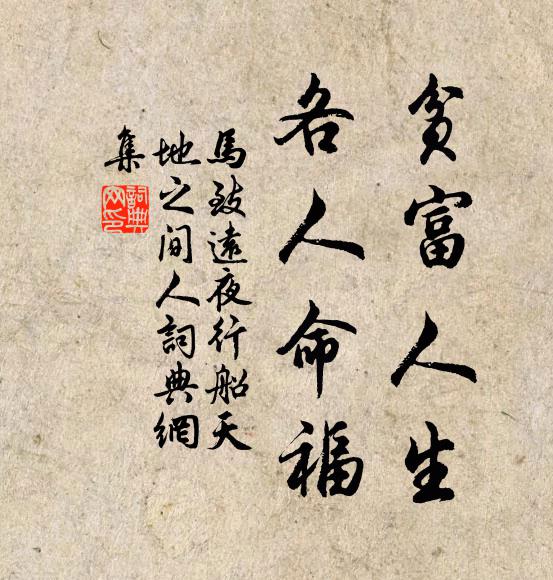 貧富人生
各人命福
馬致遠夜行船天
地之間人詞典網
集
詞典
网印